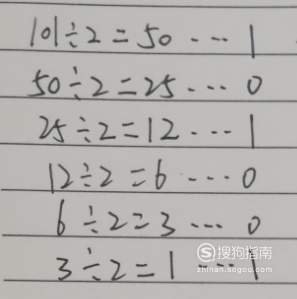 101÷2=50 ··· 1
50÷2=25 ··· 0
25÷2=12 ··· 1
12÷2=6 ··· 0
6÷2=3 ··· 0
3÷2=1 ··· 1
搜狗指南
zhinan.sogou.com